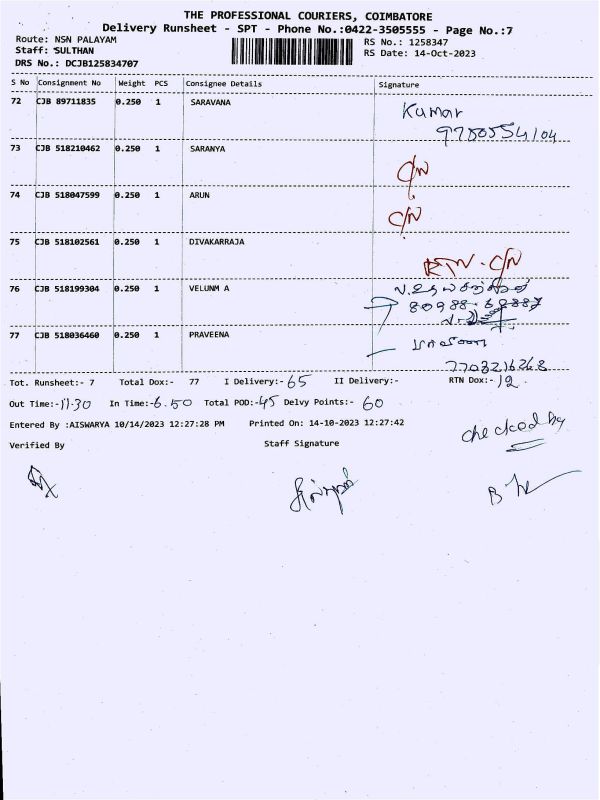 THE PROFESSIONAL COURIERS, COIMBATORE
Delivery Runsheet - SPT - Phone No.:0422-3505555 - Page No.:7
Route: NSN PALAYAM
Staff: SULTHAN
DRS No.: DCJB125834707
RS No.: 1258347
RS Date: 14-Oct-2023
S No Consignment No Weight PCS Consignee Details Signature
72 CJB 89711835 0.250 1 SARAVANA Kumar
9780554104
73 CJB 518210462 0.250 1 SARANYA C/N
74 CJB 518047599 0.250 1 ARUN C/N
75 CJB 518102561 0.250 1 DIVAKARRAJA RTN - C/N
76 CJB 518199304 0.250 1 VELUNM A
77 CJB 518036460 0.250 1 PRAVEENA
7703216268
Tot. Runsheet:- 7 Total Dox:- 77 I Delivery:- 65 II Delivery:- RTN Dox:- 12
Out Time:-11.30 In Time:-6.50 Total POD:-45 Delvy Points:- 60
Entered By :AISWARYA 10/14/2023 12:27:28 PM Printed On: 14-10-2023 12:27:42
checked by
Verified By Staff Signature